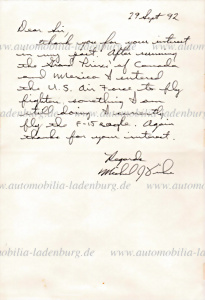 29 Sept 92
Dear Sir
thank you for your interest
in my past. After running
the Grand Prixs' of Canada
and Mexico I entered
the U.S. Air Force to fly
fighters something I am
still doing. I currently
fly the F-15 eagle. Again
thanks for your interest.
Regards
www.automobilia-ladenburg.de
www.automobilia-ladenburg.de
www.automobilia-ladenburg.de